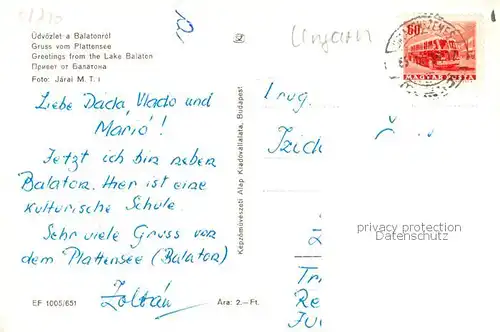 Üdvözlet a Balatonról
Gruss vom Plattensee
Greetings from the Lake Balaton
Привет от Балатона
Foto: Járai M. T. I
Liebe Dada, Vlado und
Mario!
Jetzt ich bin neben
Balaton. Hier ist eine
kulturische Schule.
Sehr viele Gruss von
dem Plattensee (Balaton)
Zoltán
EF 1005/651
Ára: 2.– Ft.
Képzőművészeti Alap Kiadóvállalata, Budapest
Ungarn
60f
MAGYAR POSTA
Drug.
Izido
privacy protection
Datenschutz
Tr
Re